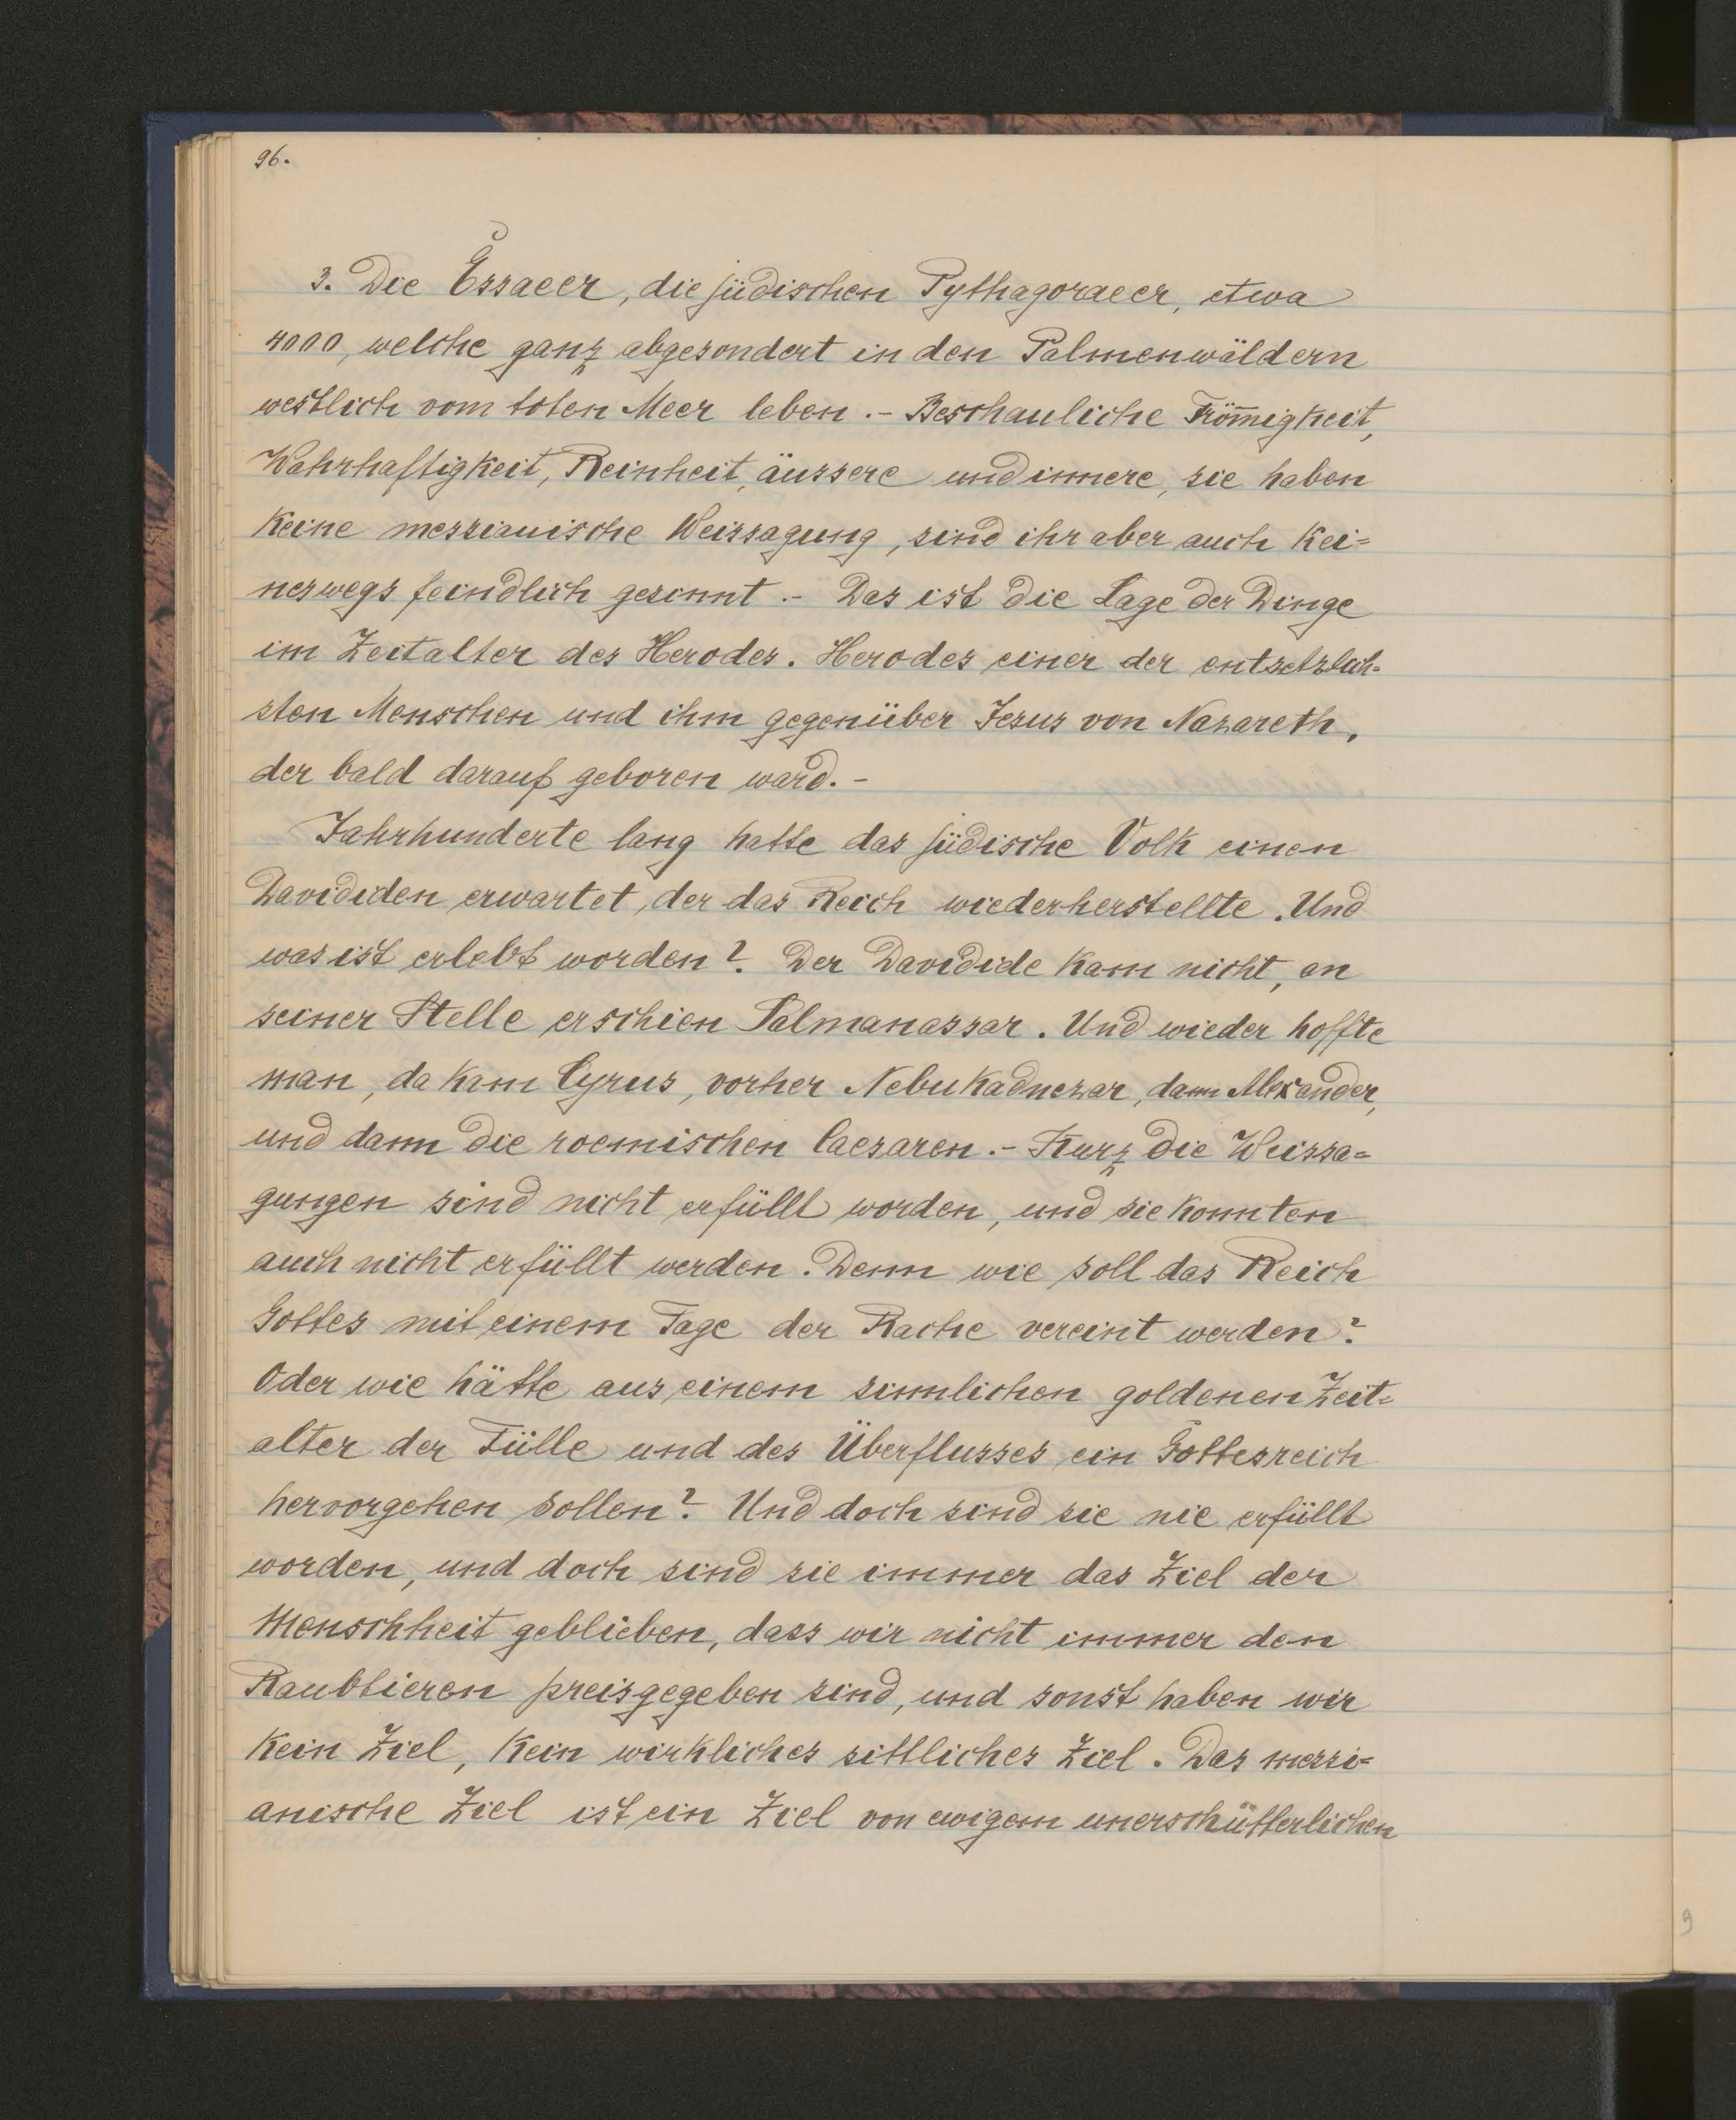 96.
3. Die Essaeer, die jüdischen Pythagoraeer, etwa
4000, welche ganz abgesondert in den Palmenwäldern
westlich vom toten Meer leben. - Beschauliche Fröm̄igkeit,
Wahrhaftigkeit, Reinheit, äussere und innere, sie haben
keine messianische Weissagung, sind ihr aber auch kei=
neswegs feindlich gesinnt. - Das ist die Lage der Dinge
im Zeitalter des Herodes. Herodes einer der entsetzlich=
sten Menschen und ihm gegenüber Jesus von Nazareth,
der bald darauf geboren ward. -
Jahrhunderte lang hatte das jüdische Volk einen
Davididen erwartet, der das Reich wiederherstellte. Und
was ist erlebt worden? Der Davidide kam nicht, an
seiner Stelle erschien Salmanassar. Und wieder hoffte
man, da kam Cyrus, vorher Nebukadnezar, dann Alexander,
und dann die roemischen Caesaren. - Kurz die Weissa=
gungen sind nicht erfüllt worden, und sie konnten
auch nicht erfüllt werden. Denn wie soll das Reich
Gottes mit einem Tage der Rache vereint werden?
Oder wie hätte aus einem sinnlichen goldenen Zeit=
alter der Fülle und des Überflusses ein Gottesreich
hervorgehen sollen? Und doch sind sie nie erfüllt
worden, und doch sind sie immer das Ziel der
Menschheit geblieben, dass wir nicht immer den
Raubtieren preisgegeben sind, und sonst haben wir
kein Ziel, kein wirkliches sittliches Ziel. Das messi=
anische Ziel ist ein Ziel von ewigem unerschütterlichen
9